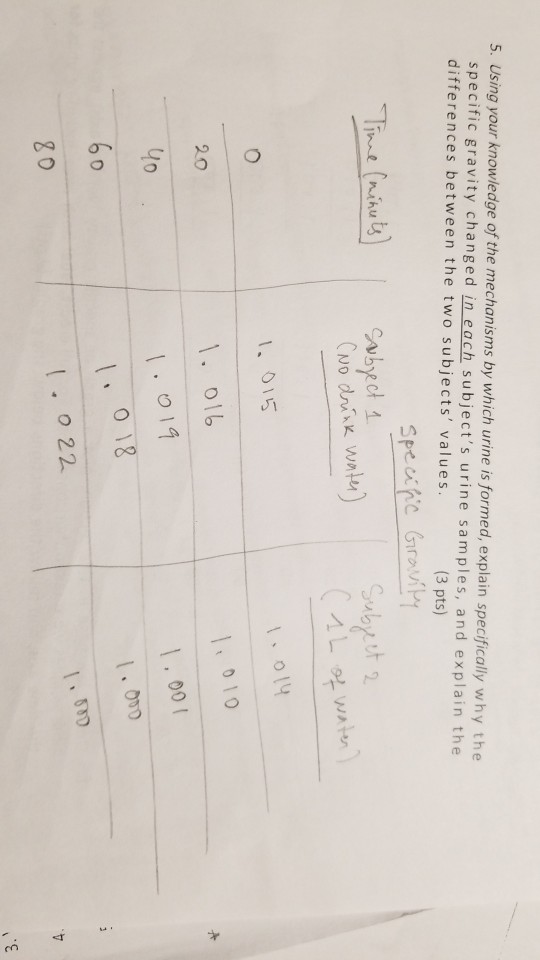 5. Using your knowledge of the mechanisms by which urine is formed, explain specifically why the
specific gravity changed in each subject's urine samples, and explain the
differences between the two subjects' values. (3 pts)
Specific Gravity
Time (minute) Subject 1 Subject 2
(No drink water) (1L of water)
0 1.015 1.014
20 1.016 1.010
40 1.019 1.001
60 1.018 1.000
80 1.022 1.000
*
4.
3.